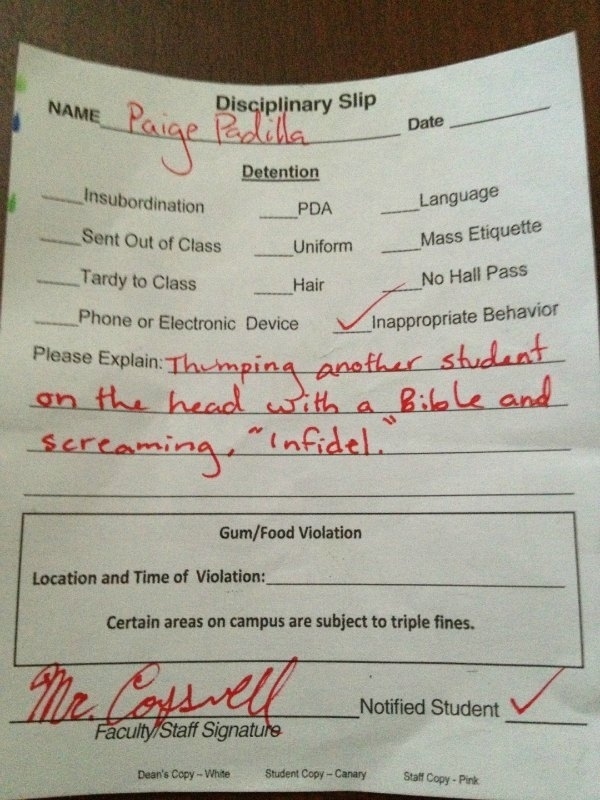 Disciplinary Slip
NAME Paige Padilla Date
Detention
Insubordination PDA Language
Sent Out of Class Uniform Mass Etiquette
Tardy to Class Hair No Hall Pass
Phone or Electronic Device Inappropriate Behavior
Please Explain: Thumping another student
on the head with a Bible and
screaming, "Infidel."
Gum/Food Violation
Location and Time of Violation:
Certain areas on campus are subject to triple fines.
Mr. Cogswell Notified Student
Faculty/Staff Signature
Dean's Copy – White Student Copy – Canary Staff Copy - Pink